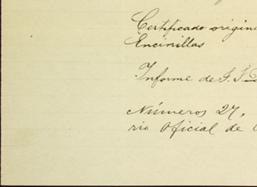 Certificado origin
Encinillas
Informe de G. I.
Números 27,
rio Oficial de